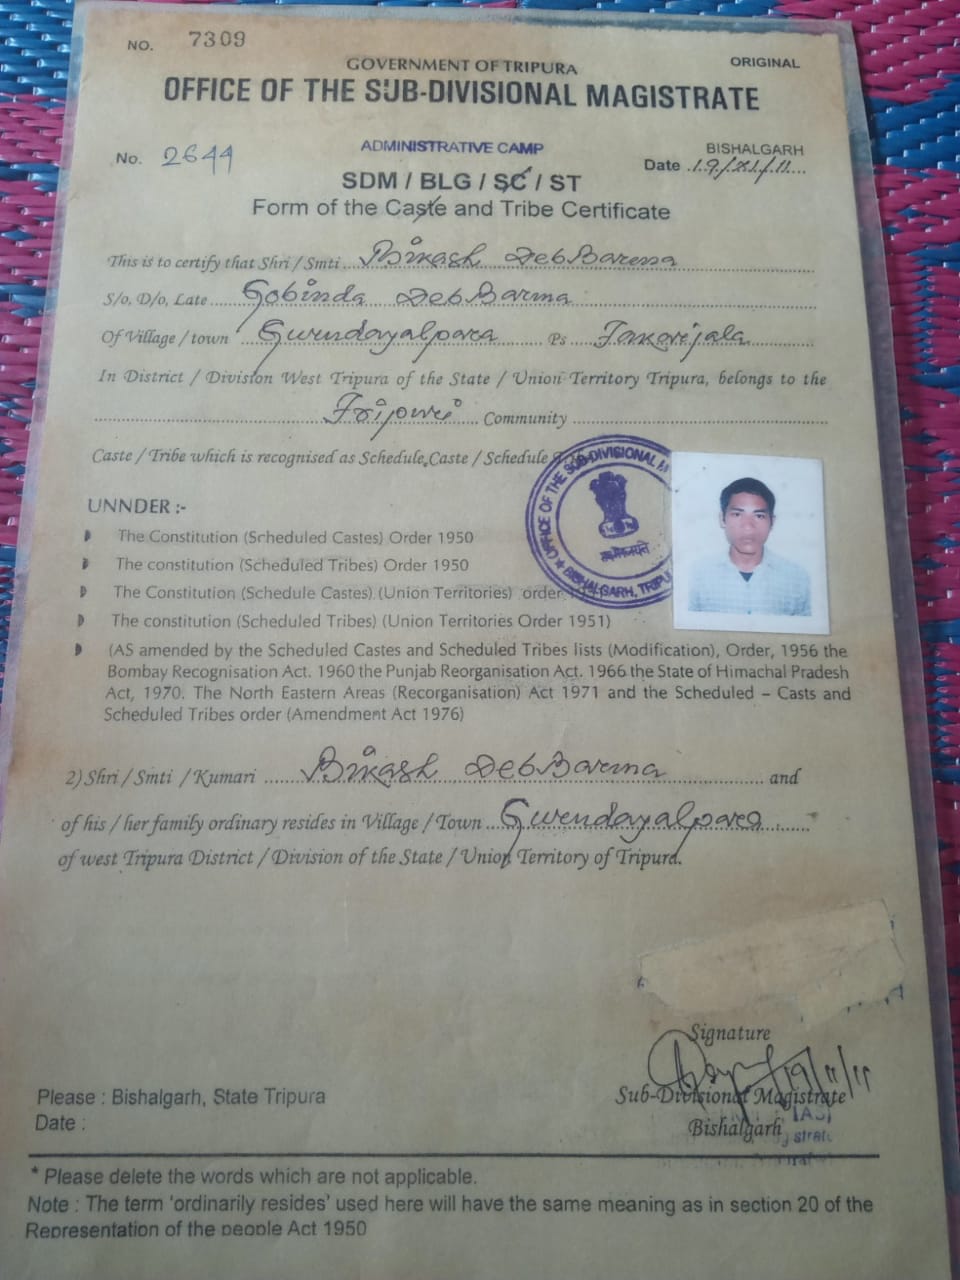 NO. 7309
ORIGINAL
GOVERNMENT OF TRIPURA
OFFICE OF THE SUB-DIVISIONAL MAGISTRATE
ADMINISTRATIVE CAMP
BISHALGARH
No. 2644
Date 19/11/11
SDM / BLG / SC / ST
Form of the Caste and Tribe Certificate
This is to certify that Shri / Smti Bikash DebBarma
S/o, D/o, Late Gobinda DebBarma
Of Village / town Gurudayalpara Ps Takarjala
In District / Division West Tripura of the State / Union Territory Tripura, belongs to the
Tripuri Community
Caste / Tribe which is recognised as Schedule Caste / Schedule
OFFICE OF THE SUB-DIVISIONAL
BISHALGARH, TRIPU
UNNDER :-
The Constitution (Scheduled Castes) Order 1950
The constitution (Scheduled Tribes) Order 1950
The Constitution (Schedule Castes) (Union Territories) order
The constitution (Scheduled Tribes) (Union Territories Order 1951)
(AS amended by the Scheduled Castes and Scheduled Tribes lists (Modification), Order, 1956 the
Bombay Recognisation Act. 1960 the Punjab Reorganisation Act. 1966 the State of Himachal Pradesh
Act, 1970. The North Eastern Areas (Recorganisation) Act 1971 and the Scheduled – Casts and
Scheduled Tribes order (Amendment Act 1976)
2) Shri / Smti / Kumari Bikash DebBarma and
of his / her family ordinary resides in Village / Town Gurudayalpara
of west Tripura District / Division of the State / Union Territory of Tripura.
Signature
19/11/11
Please : Bishalgarh, State Tripura
Sub-Divisional Magistrate
Date :
Bishalgarh
* Please delete the words which are not applicable.
Note : The term 'ordinarily resides' used here will have the same meaning as in section 20 of the
Representation of the people Act 1950